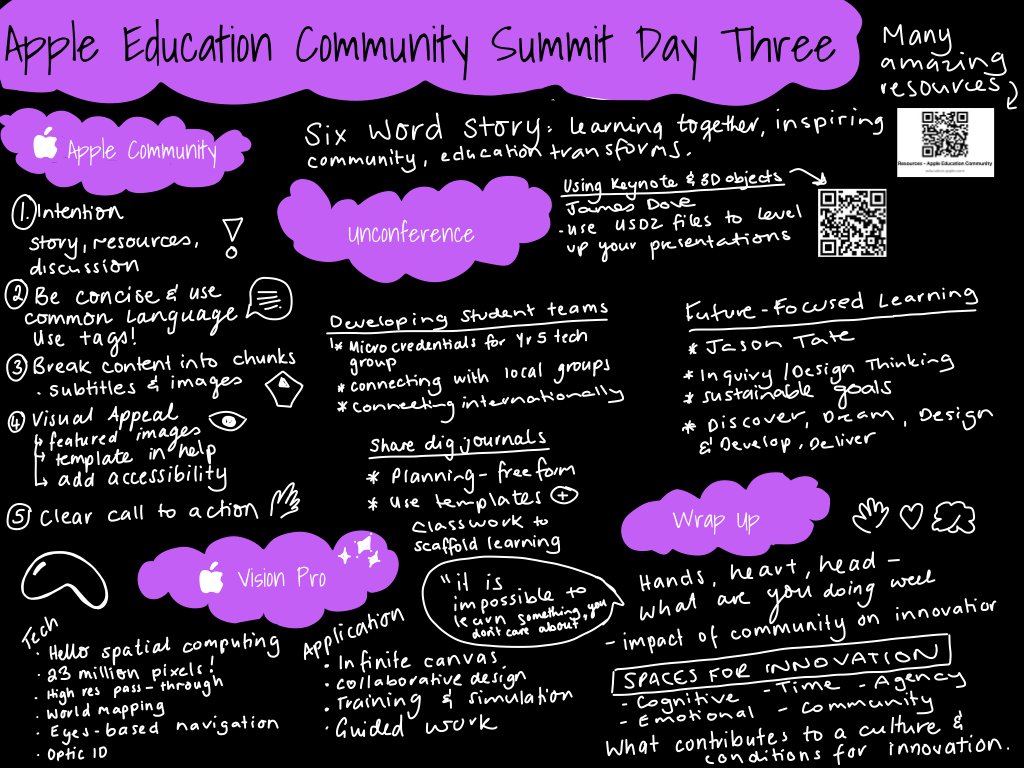 Apple Education Community Summit Day Three
Many
amazing
resources
Resources - Apple Education Community
education.apple.com
Apple Community
1. Intention
story, resources,
discussion
2 Be concise & use
common language
use tags!
3 Break content into chunks
· subtitles & images
4 Visual Appeal
↳ featured images
↳ template in help
↳ add accessibility
5 Clear call to action
Six word story: learning together, inspiring
community, education transforms.
Unconference
Using Keynote & 3D objects
James Dove
- use USDZ files to level
up your presentations
Developing student teams
* Micro credentials for Yr 5 tech
group
* connecting with local groups
* connecting internationally
Share dig journals
* Planning - freeform
* Use templates +
Classwork to
scaffold learning
Future-Focused Learning
* Jason Tate
* Inquiry / Design Thinking
* sustainable goals
* Discover, Dream, Design
& Develop, Deliver
Vision Pro
Tech
· Hello spatial computing
· 23 million pixels!
· High res pass-through
· World mapping
· Eyes-based navigation
· Optic ID
Application
· Infinite canvas
· collaborative design
· Training & simulation
· Guided work
"it is
impossible to
learn something, you
don't care about"
Wrap Up
Hands, heart, head -
What are you doing well
- impact of community on innovation
SPACES FOR INNOVATION
- Cognitive - Time - Agency
- Emotional - Community
What contributes to a culture &
conditions for innovation.